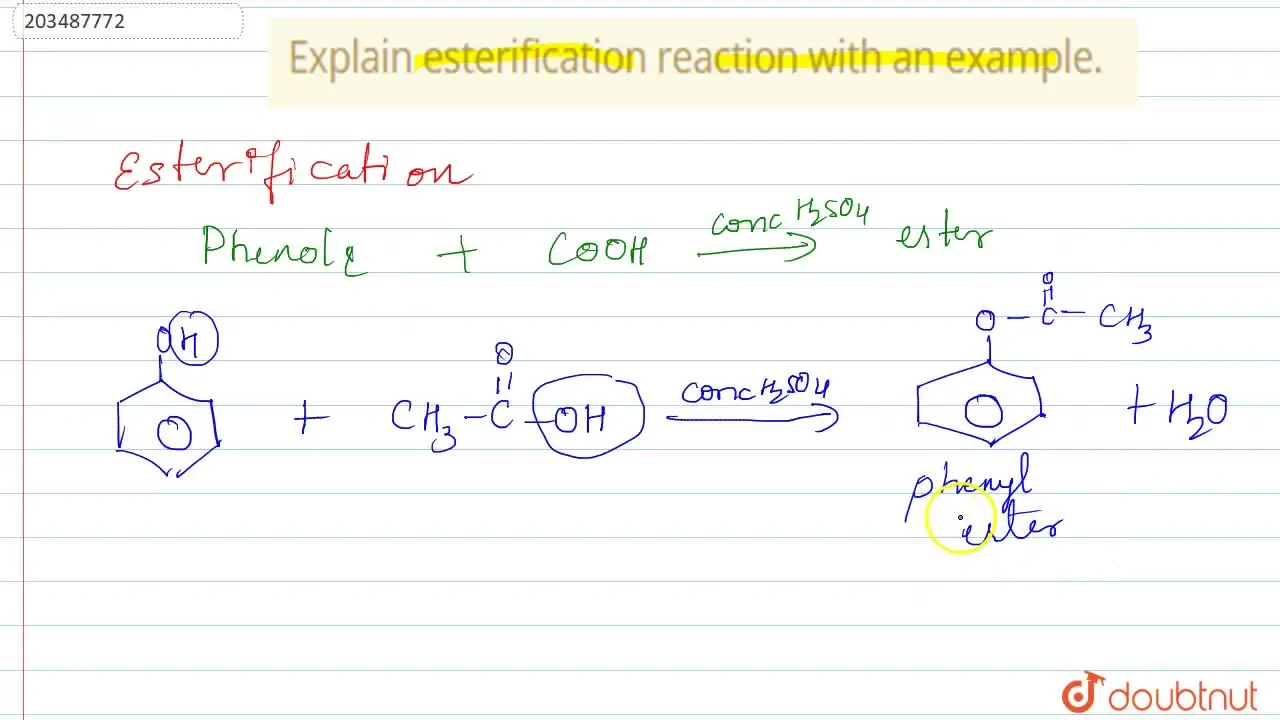 203487772
Explain esterification reaction with an example.
Esterification
Phenolq + COOH conc H2SO4 → ester
OH + CH3-C-OH conc H2SO4 → O-C-CH3 + H2O
O
O
phenyl
ester
doubtnut